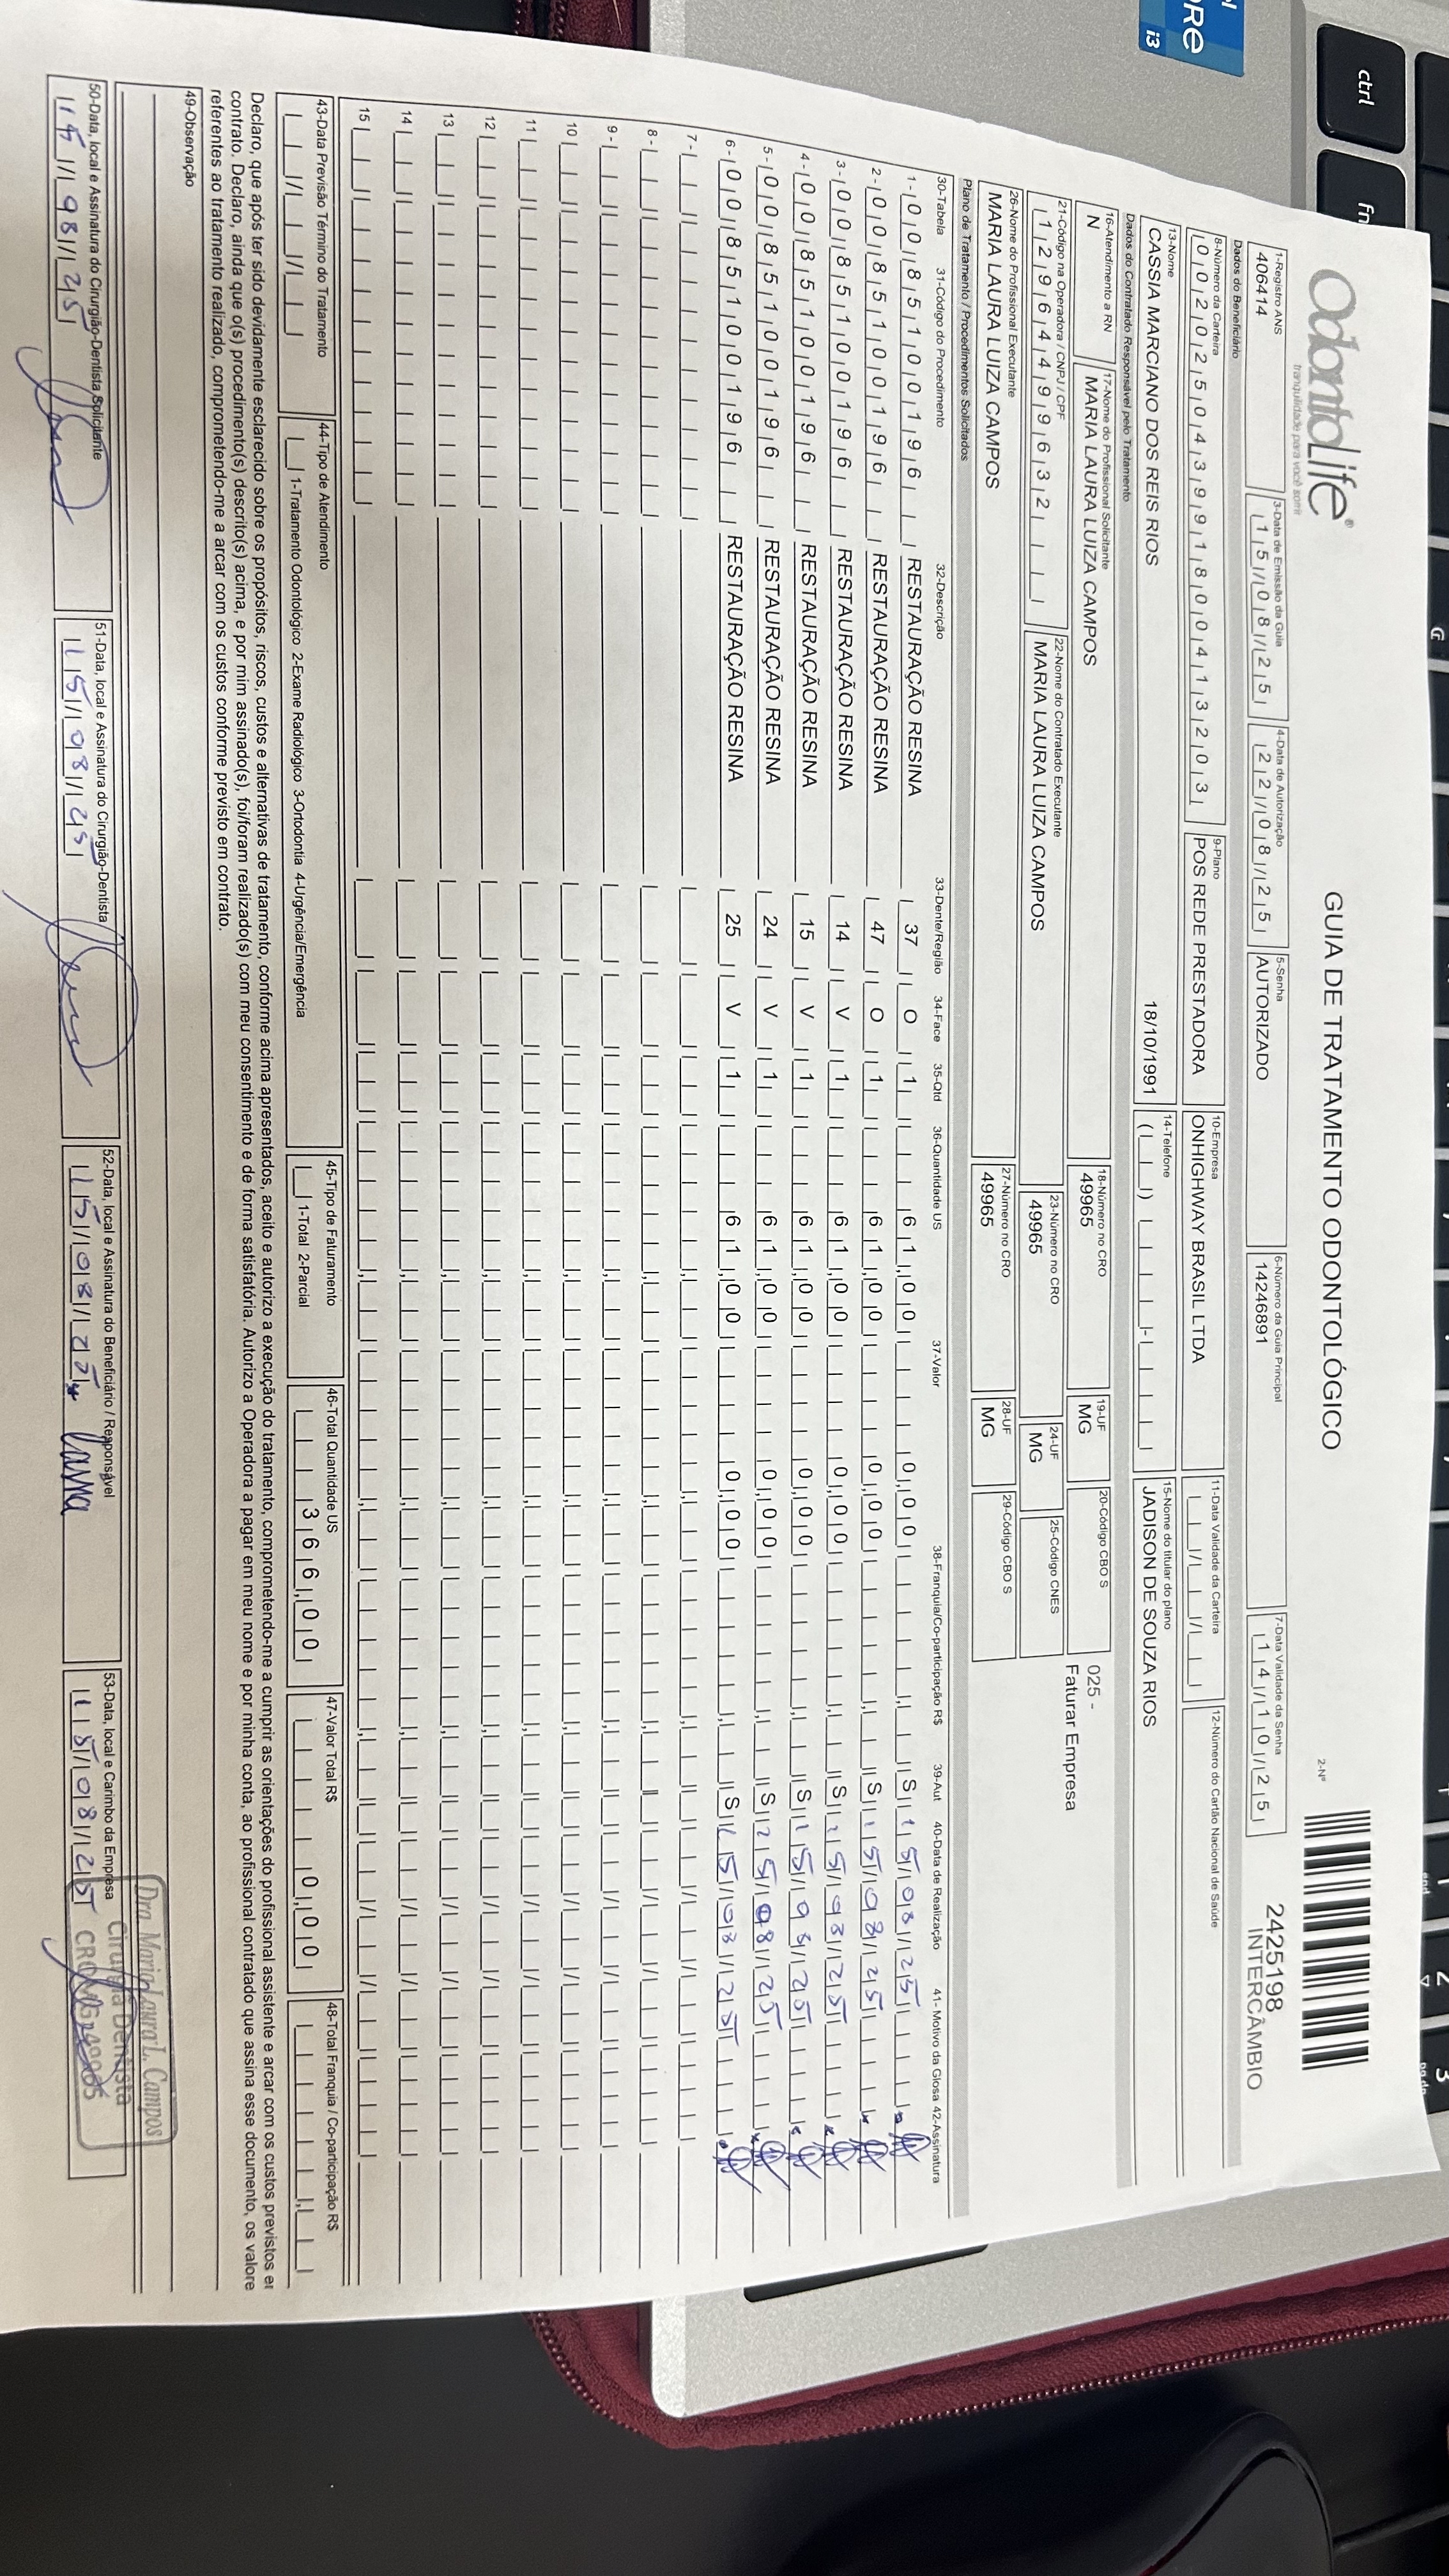 OdontoLife®
tranquilidade para você sorrir
GUIA DE TRATAMENTO ODONTOLÓGICO
2-Nº
2425198
INTERCÂMBIO
1-Registro ANS
406414
3-Data de Emissão da Guia
15/08/25
4-Data de Autorização
22/08/25
5-Senha
AUTORIZADO
6-Número da Guia Principal
14246891
7-Data Validade da Senha
14/10/25
Dados do Beneficiário
8-Número da Carteira
002025043991800413203
9-Plano
POS REDE PRESTADORA
10-Empresa
ONHIGHWAY BRASIL LTDA
11-Data Validade da Carteira
12-Número do Cartão Nacional de Saúde
13-Nome
CASSIA MARCIANO DOS REIS RIOS 18/10/1991
14-Telefone
15-Nome do titular do plano
JADISON DE SOUZA RIOS
Dados do Contratado Responsável pelo Tratamento
16-Atendimento a RN
N
17-Nome do Profissional Solicitante
MARIA LAURA LUIZA CAMPOS
18-Número no CRO
49965
19-UF
MG
20-Código CBO S
025 -
Faturar Empresa
21-Código na Operadora / CNPJ / CPF
12964499632
22-Nome do Contratado Executante
MARIA LAURA LUIZA CAMPOS
23-Número no CRO
49965
24-UF
MG
25-Código CNES
26-Nome do Profissional Executante
MARIA LAURA LUIZA CAMPOS
27-Número no CRO
49965
28-UF
MG
29-Código CBO S
Plano de Tratamento / Procedimentos Solicitados
30-Tabela 31-Código do Procedimento 32-Descrição 33-Dente/Região 34-Face 35-Qtd 36-Quantidade US 37-Valor 38-Franquia/Co-participação R$ 39-Aut 40-Data de Realização 41- Motivo da Glosa 42-Assinatura
1- 00 85100196 RESTAURAÇÃO RESINA 37 O 1 61,00 0,00 S 15/08/25
2- 00 85100196 RESTAURAÇÃO RESINA 47 O 1 61,00 0,00 S 15/08/25
3- 00 85100196 RESTAURAÇÃO RESINA 14 V 1 61,00 0,00 S 15/08/25
4- 00 85100196 RESTAURAÇÃO RESINA 15 V 1 61,00 0,00 S 15/08/25
5- 00 85100196 RESTAURAÇÃO RESINA 24 V 1 61,00 0,00 S 15/08/25
6- 00 85100196 RESTAURAÇÃO RESINA 25 V 1 61,00 0,00 S 15/08/25
7-
8-
9-
10
11
12
13
14
15
43-Data Previsão Término do Tratamento
44-Tipo de Atendimento
1-Tratamento Odontológico 2-Exame Radiológico 3-Ortodontia 4-Urgência/Emergência
45-Tipo de Faturamento
1-Total 2-Parcial
46-Total Quantidade US
366,00
47-Valor Total R$
0,00
48-Total Franquia / Co-participação R$
Declaro, que após ter sido devidamente esclarecido sobre os propósitos, riscos, custos e alternativas de tratamento, conforme acima apresentados, aceito e autorizo a execução do tratamento, comprometendo-me a cumprir as orientações do profissional assistente e arcar com os custos previstos e
contrato. Declaro, ainda que o(s) procedimento(s) descrito(s) acima, e por mim assinado(s), foi/foram realizado(s) com meu consentimento e de forma satisfatória. Autorizo a Operadora a pagar em meu nome e por minha conta, ao profissional contratado que assina esse documento, os valore
referentes ao tratamento realizado, comprometendo-me a arcar com os custos conforme previsto em contrato.
49-Observação
50-Data, local e Assinatura do Cirurgião-Dentista Solicitante
15/08/25
51-Data, local e Assinatura do Cirurgião-Dentista
15/08/25
52-Data, local e Assinatura do Beneficiário / Responsável
15/08/25
53-Data, local e Carimbo da Empresa
15/08/25
Dra. Maria Laura L. Campos
Cirurgiã Dentista
CRO MG 49965